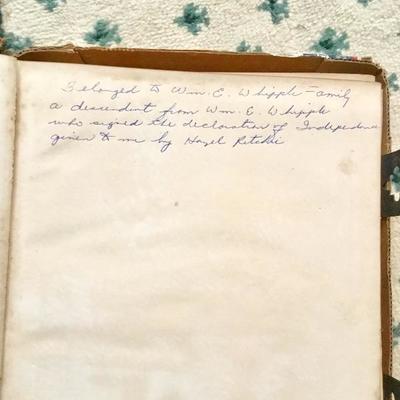 Belonged to Wm. E. Whipple Family
a descendent from Wm. E. Whipple
who signed the declaration of Independence
given to me by Hazel Ritchie